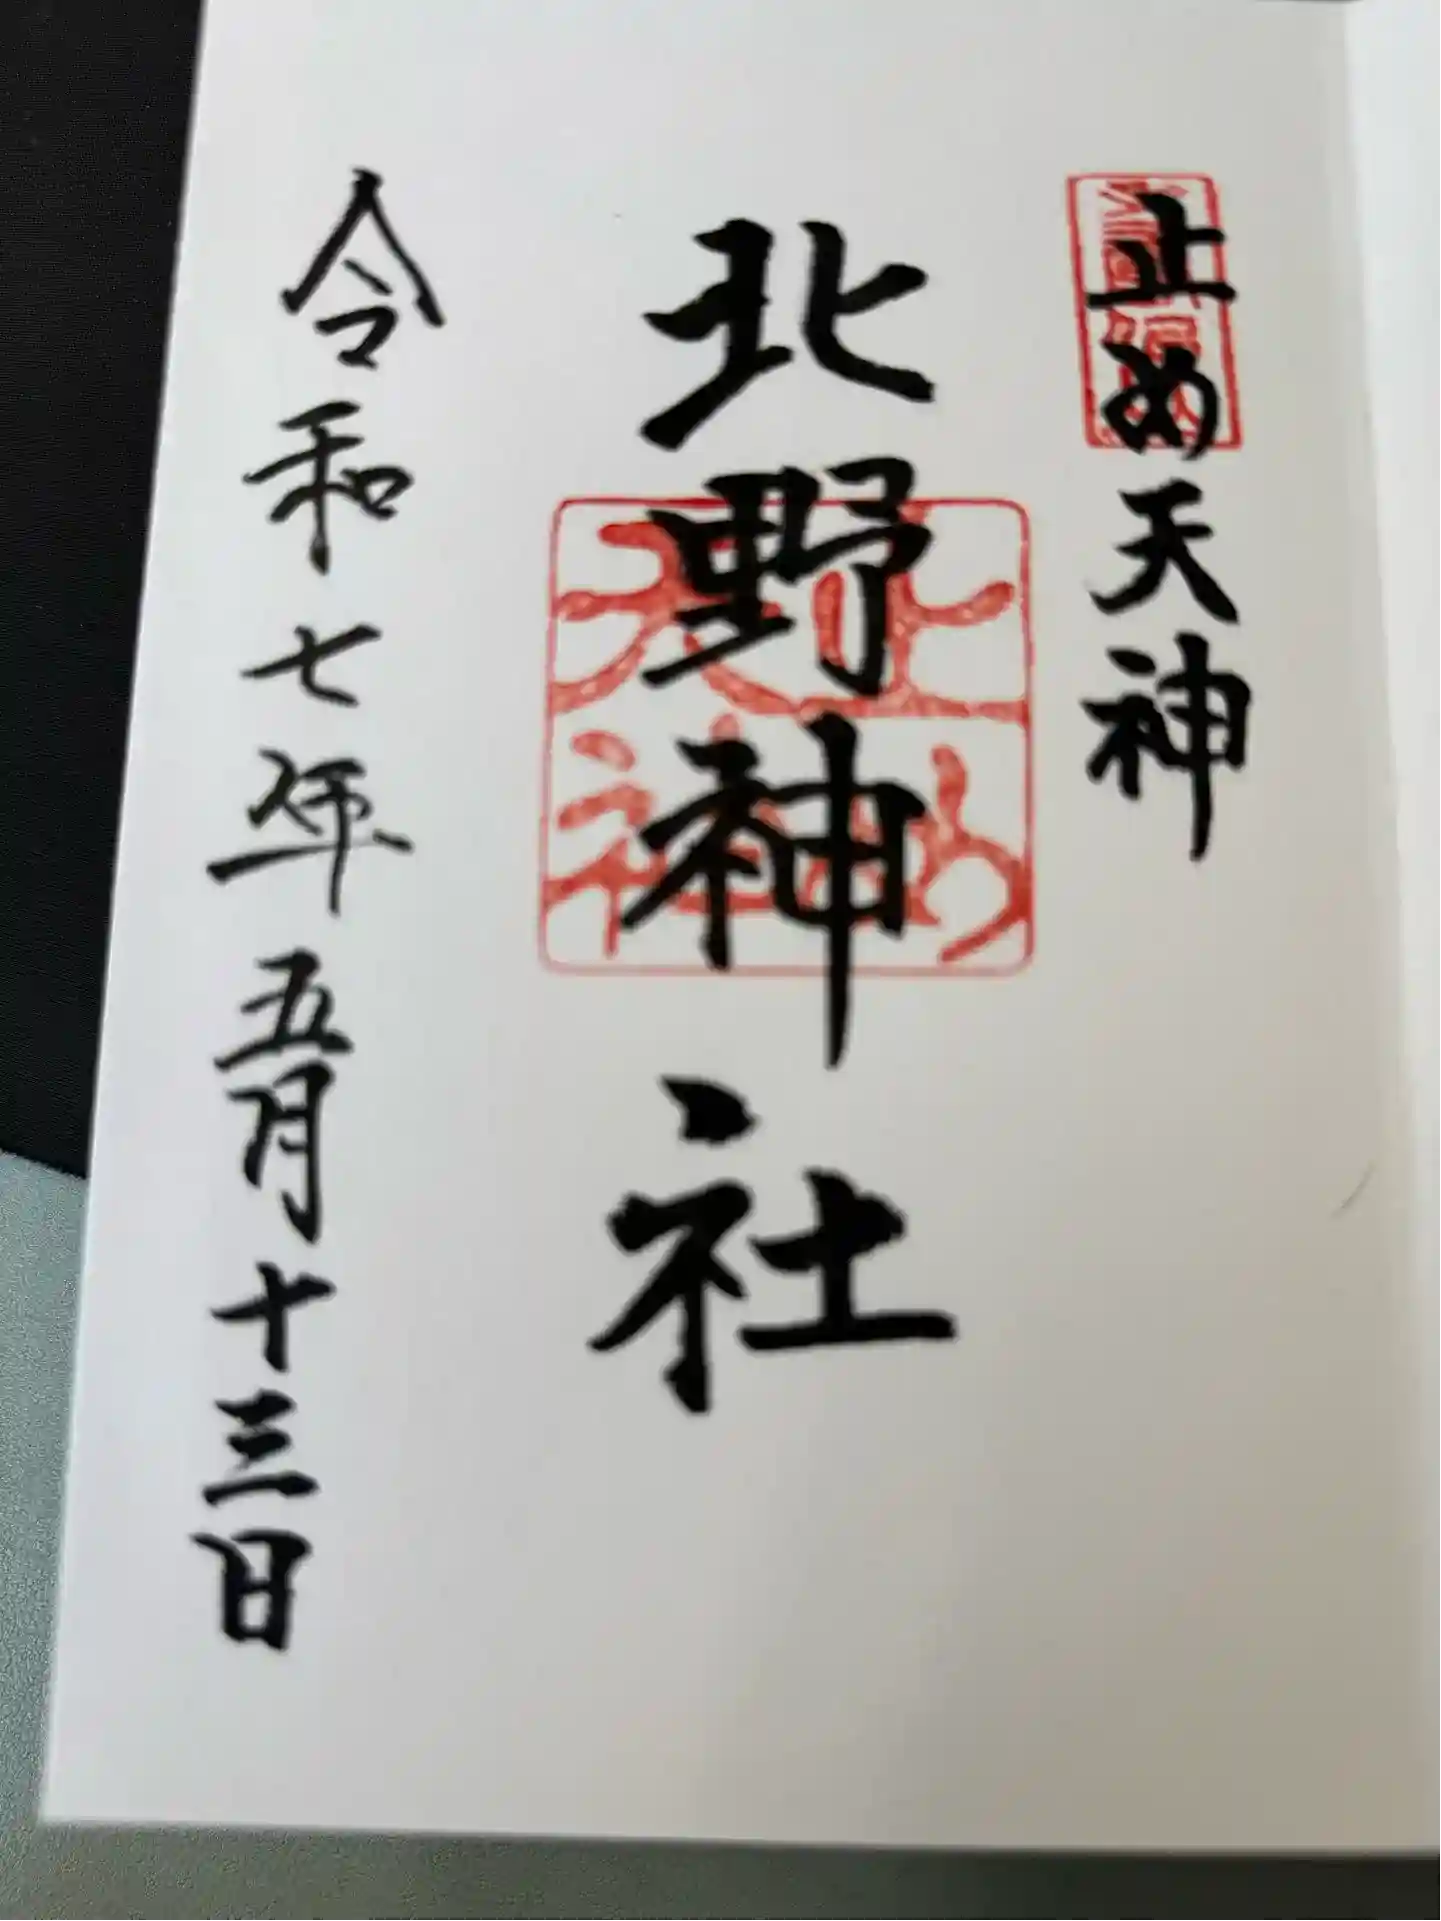 止め天神
北野神社
令和七年五月十三日
止め天神